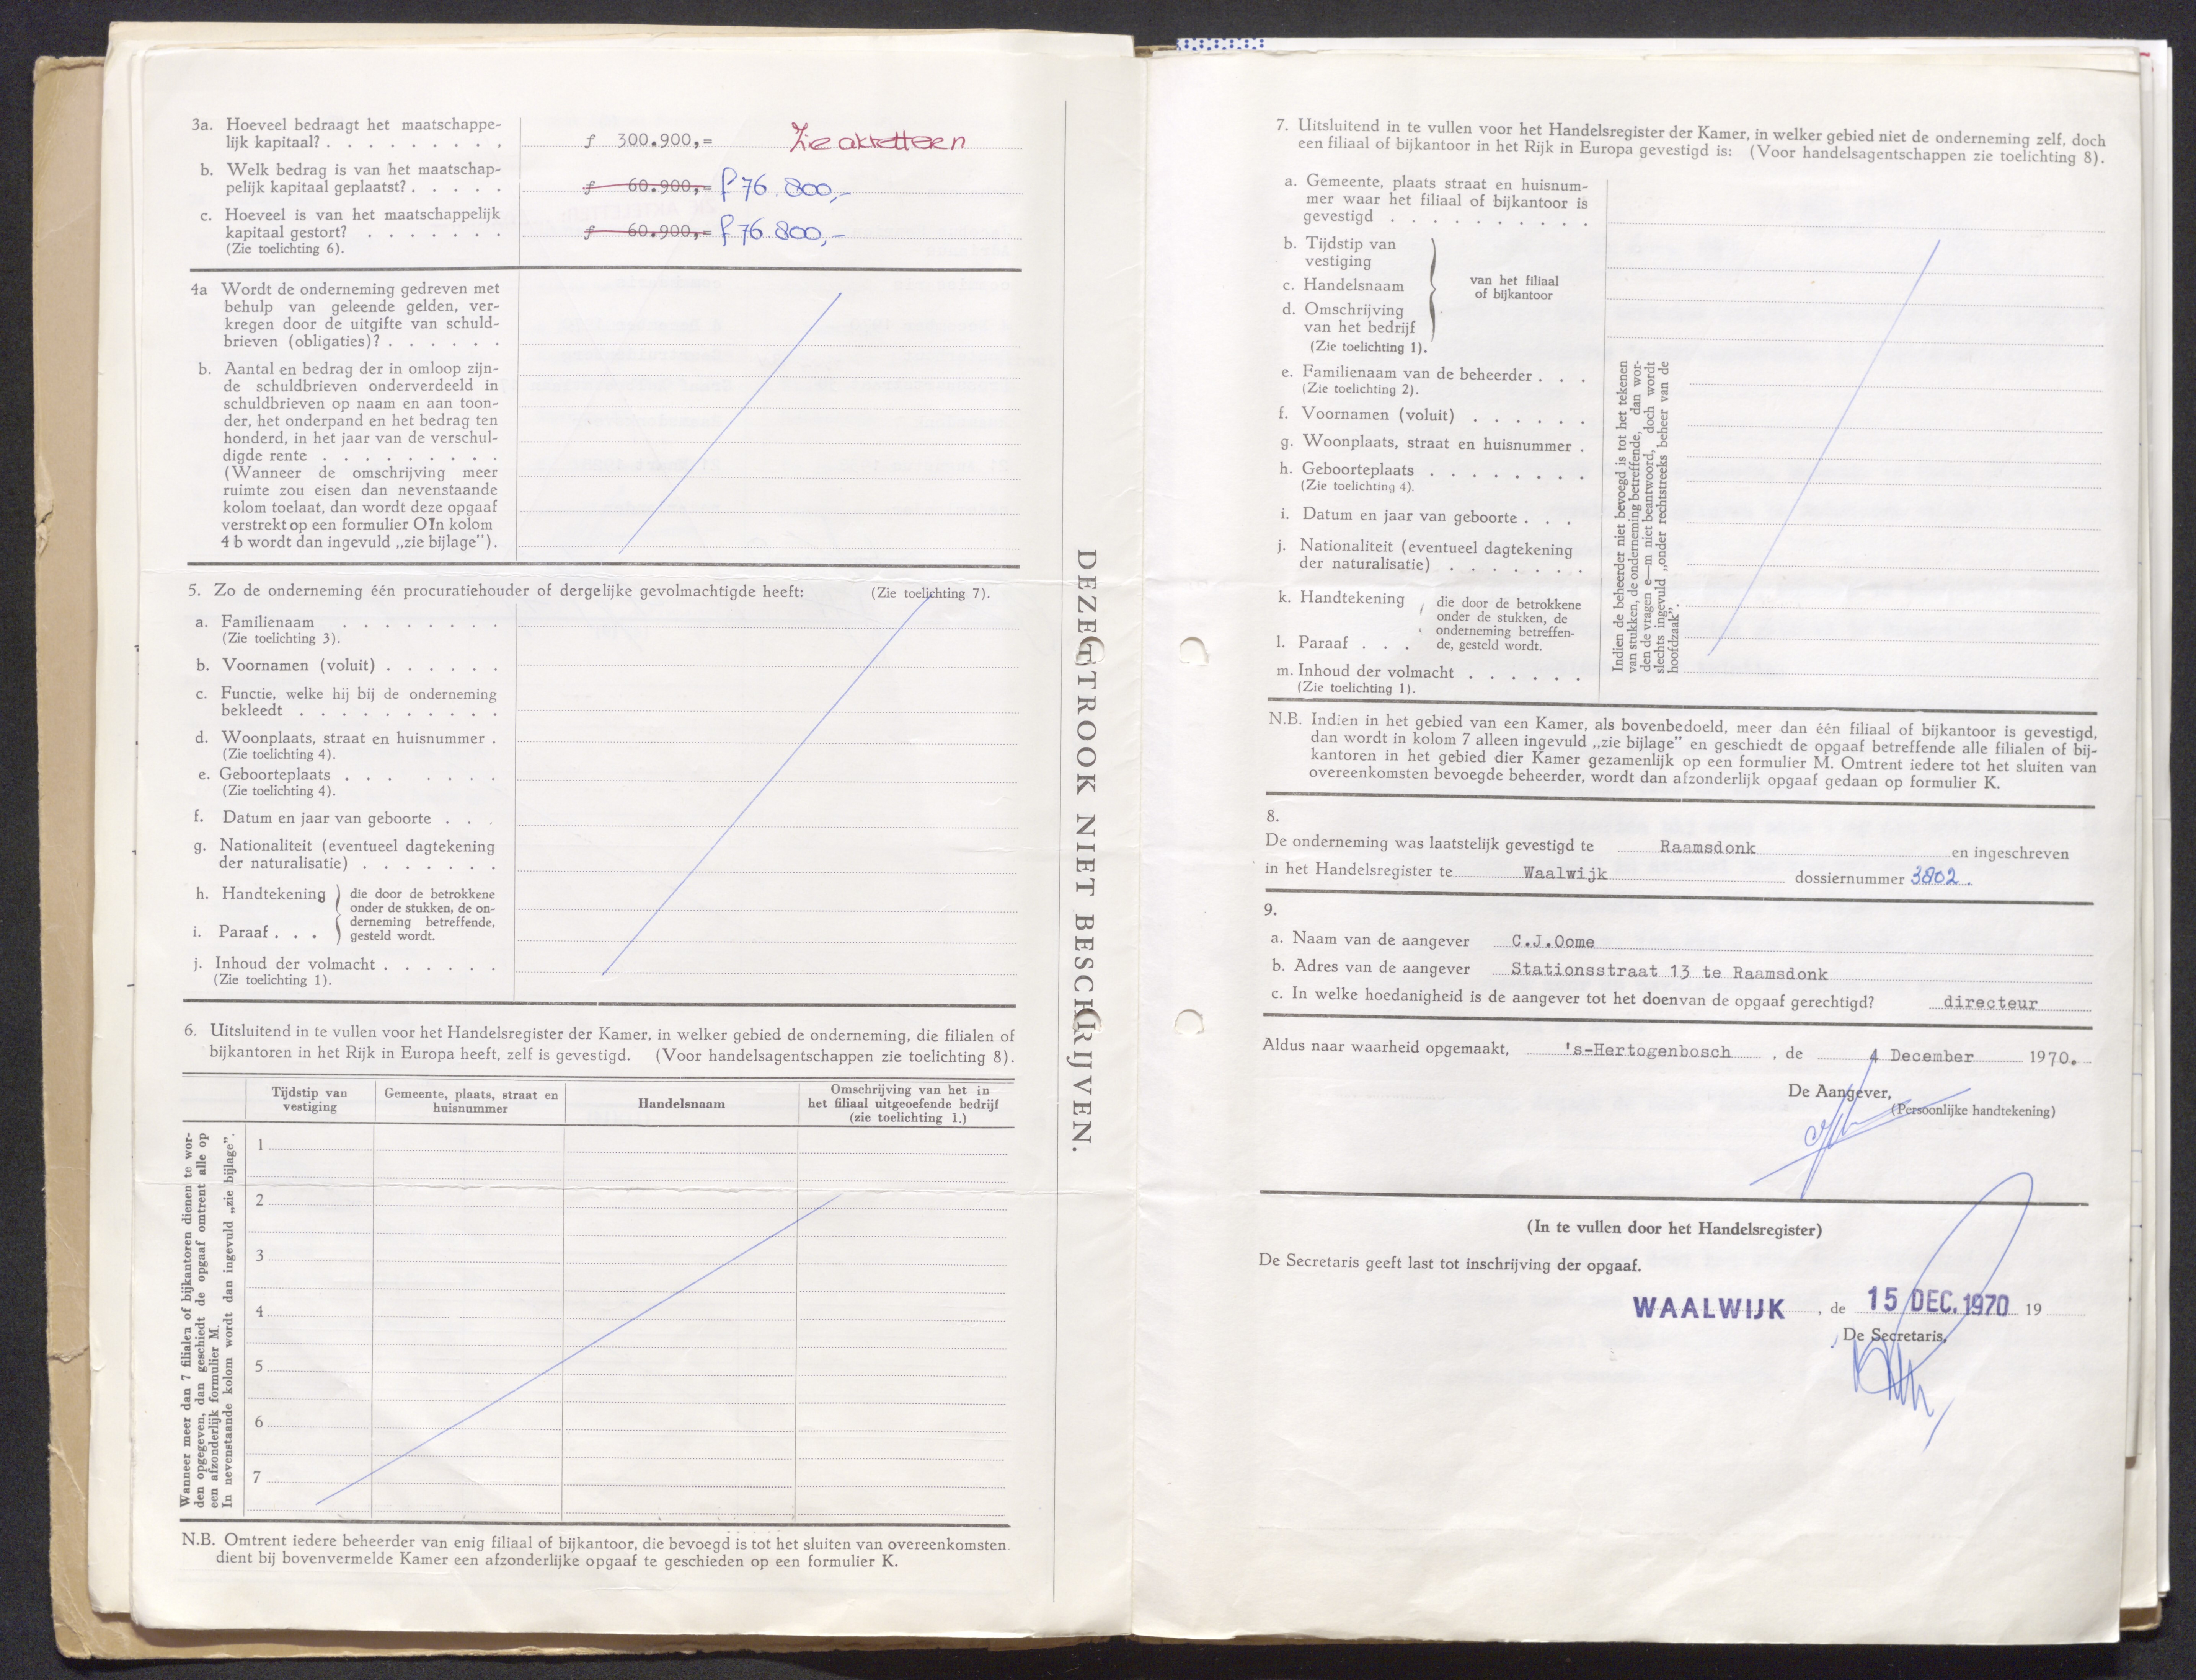 3a. Hoeveel bedraagt het maatschappe-
lijk kapitaal? . . . . . . . . . f 300.900,=
b. Welk bedrag is van het maatschap-
pelijk kapitaal geplaatst? . . . . . f 60.900,= f 76.800,-
c. Hoeveel is van het maatschappelijk
kapitaal gestort? . . . . . . . f 60.900,= f 76.800,-
(Zie toelichting 6).
4a Wordt de onderneming gedreven met
behulp van geleende gelden, ver-
kregen door de uitgifte van schuld-
brieven (obligaties)? . . . . . .
b. Aantal en bedrag der in omloop zijn-
de schuldbrieven onderverdeeld in
schuldbrieven op naam en aan toon-
der, het onderpand en het bedrag ten
honderd, in het jaar van de verschul-
digde rente . . . . . . . . .
(Wanneer de omschrijving meer
ruimte zou eisen dan nevenstaande
kolom toelaat, dan wordt deze opgaaf
verstrekt op een formulier O In kolom
4 b wordt dan ingevuld „zie bijlage”).
5. Zo de onderneming één procuratiehouder of dergelijke gevolmachtigde heeft: (Zie toelichting 7).
a. Familienaam . . . . . . . .
(Zie toelichting 3).
b. Voornamen (voluit) . . . . . .
c. Functie, welke hij bij de onderneming
bekleedt . . . . . . . . . .
d. Woonplaats, straat en huisnummer .
(Zie toelichting 4).
e. Geboorteplaats . . . . . . .
(Zie toelichting 4).
f. Datum en jaar van geboorte . . .
g. Nationaliteit (eventueel dagtekening
der naturalisatie) . . . . . . .
h. Handtekening
i. Paraaf . . .
die door de betrokkene
onder de stukken, de on-
derneming betreffende,
gesteld wordt.
j. Inhoud der volmacht . . . . . .
(Zie toelichting 1).
6. Uitsluitend in te vullen voor het Handelsregister der Kamer, in welker gebied de onderneming, die filialen of
bijkantoren in het Rijk in Europa heeft, zelf is gevestigd. (Voor handelsagentschappen zie toelichting 8).
Tijdstip van
vestiging
Gemeente, plaats, straat en
huisnummer
Handelsnaam
Omschrijving van het in
het filiaal uitgeoefende bedrijf
(zie toelichting 1.)
Wanneer meer dan 7 filialen of bijkantoren dienen te wor-
den opgegeven, dan geschiedt de opgaaf omtrent alle op
een afzonderlijk formulier M.
In nevenstaande kolom wordt dan ingevuld „zie bijlage”.
1
2
3
4
5
6
7
N.B. Omtrent iedere beheerder van enig filiaal of bijkantoor, die bevoegd is tot het sluiten van overeenkomsten
dient bij bovenvermelde Kamer een afzonderlijke opgaaf te geschieden op een formulier K.
DEZE STROOK NIET BESCHRIJVEN.
7. Uitsluitend in te vullen voor het Handelsregister der Kamer, in welker gebied niet de onderneming zelf, doch
een filiaal of bijkantoor in het Rijk in Europa gevestigd is: (Voor handelsagentschappen zie toelichting 8).
a. Gemeente, plaats straat en huisnum-
mer waar het filiaal of bijkantoor is
gevestigd . . . . . . . . . .
b. Tijdstip van
vestiging
c. Handelsnaam
d. Omschrijving
van het bedrijf
(Zie toelichting 1).
van het filiaal
of bijkantoor
e. Familienaam van de beheerder . . .
(Zie toelichting 2).
f. Voornamen (voluit) . . . . . .
g. Woonplaats, straat en huisnummer .
h. Geboorteplaats . . . . . . . .
(Zie toelichting 4).
i. Datum en jaar van geboorte . . .
j. Nationaliteit (eventueel dagtekening
der naturalisatie) . . . . . . .
k. Handtekening
l. Paraaf . . .
die door de betrokkene
onder de stukken, de
onderneming betreffen-
de, gesteld wordt.
m. Inhoud der volmacht . . . . . .
(Zie toelichting 1).
Indien de beheerder niet bevoegd is tot het tekenen
van stukken, de onderneming betreffende, dan wor-
den de vragen e—m niet beantwoord, doch wordt
slechts ingevuld „onder rechtstreeks beheer van de
hoofdzaak”.
N.B. Indien in het gebied van een Kamer, als bovenbedoeld, meer dan één filiaal of bijkantoor is gevestigd,
dan wordt in kolom 7 alleen ingevuld „zie bijlage” en geschiedt de opgaaf betreffende alle filialen of bij-
kantoren in het gebied dier Kamer gezamenlijk op een formulier M. Omtrent iedere tot het sluiten van
overeenkomsten bevoegde beheerder, wordt dan afzonderlijk opgaaf gedaan op formulier K.
8.
De onderneming was laatstelijk gevestigd te Raamsdonk en ingeschreven
in het Handelsregister te Waalwijk dossiernummer 3802.
9.
a. Naam van de aangever C.J.Oome
b. Adres van de aangever Stationsstraat 13 te Raamsdonk
c. In welke hoedanigheid is de aangever tot het doen van de opgaaf gerechtigd? directeur
Aldus naar waarheid opgemaakt, 's-Hertogenbosch , de 4 December 1970.
De Aangever,
(Persoonlijke handtekening)
(In te vullen door het Handelsregister)
De Secretaris geeft last tot inschrijving der opgaaf.
WAALWIJK , de 15 DEC. 1970 19
De Secretaris,